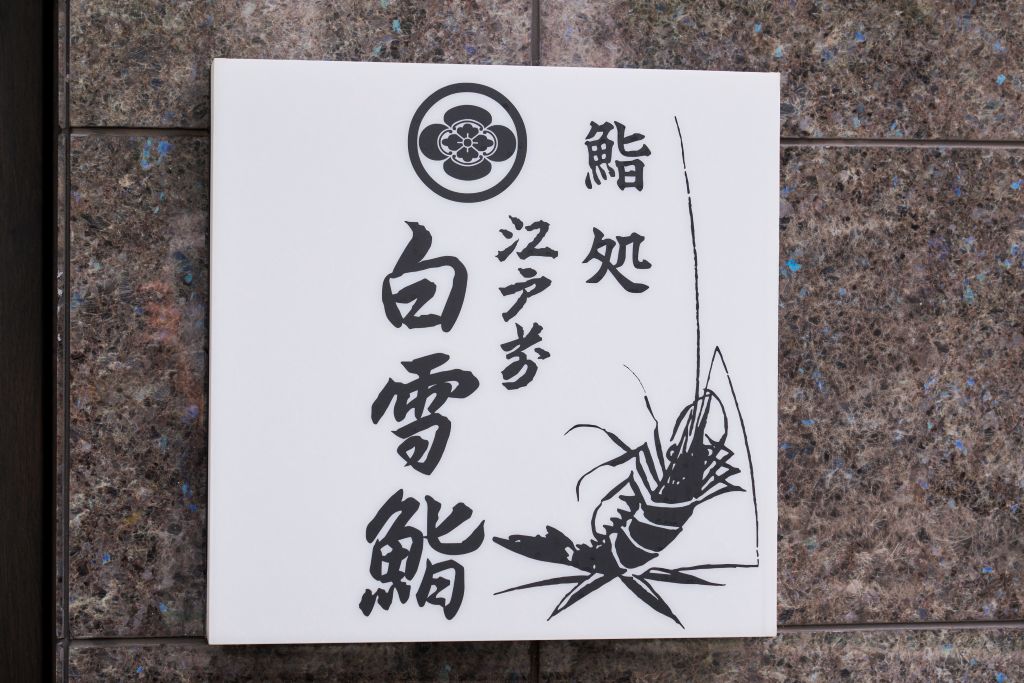 鮨処
江戸前
白雪鮨